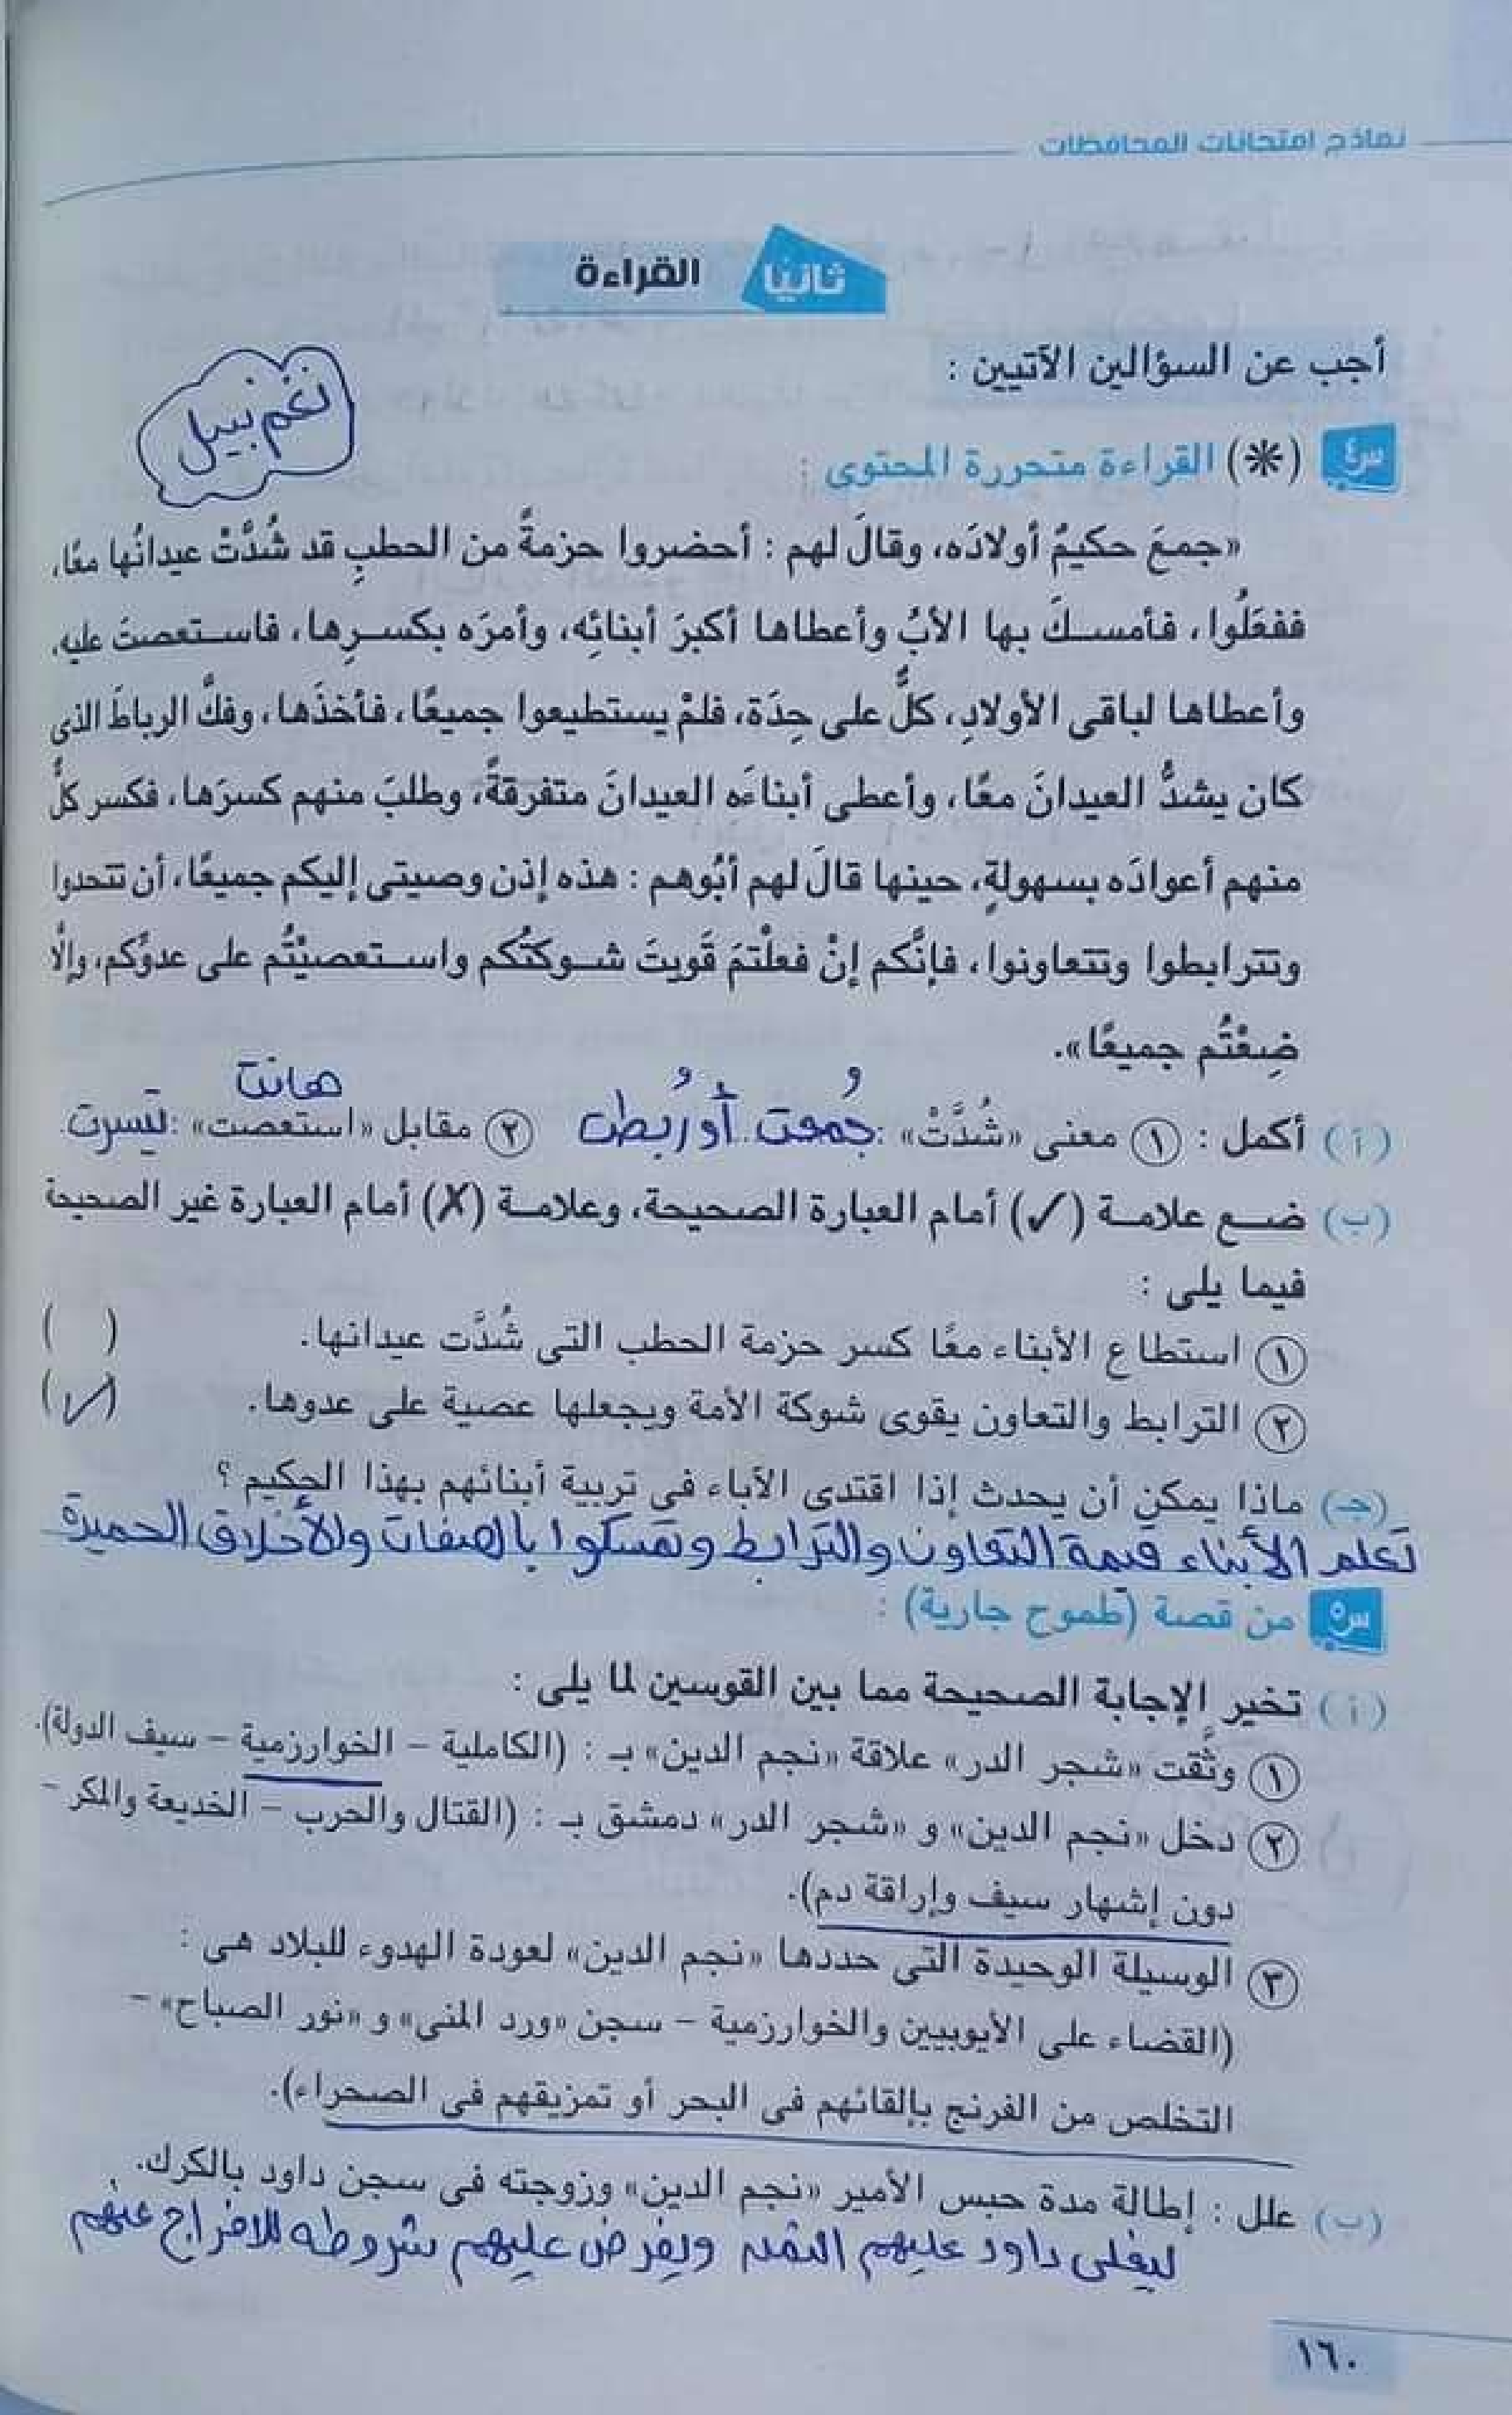 نماذج امتحانات المحافظات
ثانيًا القراءة
أجب عن السؤالين الآتيين :
نغم نبيل
س٤ (*) القراءة متحررة المحتوى :
«جمعَ حكيمٌ أولادَه، وقالَ لهم : أحضروا حزمةً من الحطبِ قد شُدَّتْ عيدانُها معًا،
ففعَلُوا، فأمسكَ بها الأبُ وأعطاها أكبرَ أبنائِه، وأمرَه بكسرِها، فاستعصتْ عليه،
وأعطاها لباقى الأولادِ، كلٌّ على حِدَة، فلمْ يستطيعوا جميعًا، فأخذَها، وفكَّ الرباطَ الذى
كان يشدُّ العيدانَ معًا، وأعطى أبناءَه العيدانَ متفرقةً، وطلبَ منهم كسرَها، فكسر كلٌّ
منهم أعوادَه بسهولةٍ، حينها قالَ لهم أبُوهم : هذه إذن وصيتى إليكم جميعًا، أن تتحدوا
وتترابطوا وتتعاونوا، فإنَّكم إنْ فعلْتمَ قَويتَ شوكتُكم واستعصيْتُم على عدوِّكم، وإلَّا
ضِعْتُم جميعًا».
هانت
(أ) أكمل : ① معنى «شُدَّتْ» : جُمعت أو رُبطت ② مقابل «استعصت» : تيسرت.
(ب) ضع علامة (✓) أمام العبارة الصحيحة، وعلامة (✗) أمام العبارة غير الصحيحة
فيما يلى :
① استطاع الأبناء معًا كسر حزمة الحطب التى شُدَّت عيدانها. ( )
② الترابط والتعاون يقوى شوكة الأمة ويجعلها عصية على عدوها. (✓)
(جـ) ماذا يمكن أن يحدث إذا اقتدى الآباء فى تربية أبنائهم بهذا الحكيم ؟
تعلم الأبناء قيمة التعاون والترابط وتمسكوا بالصفات والأخلاق الحميدة
س٥ من قصة (طموح جارية) :
(أ) تخير الإجابة الصحيحة مما بين القوسين لما يلى :
① وثَّقت «شجر الدر» علاقة «نجم الدين» بـ : (الكاملية – الخوارزمية – سيف الدولة).
② دخل «نجم الدين» و «شجر الدر» دمشق بـ : (القتال والحرب – الخديعة والمكر –
دون إشهار سيف وإراقة دم).
③ الوسيلة الوحيدة التى حددها «نجم الدين» لعودة الهدوء للبلاد هى :
(القضاء على الأيوبيين والخوارزمية – سجن «ورد المنى» و «نور الصباح» –
التخلص من الفرنج بإلقائهم فى البحر أو تمزيقهم فى الصحراء).
(ب) علل : إطالة مدة حبس الأمير «نجم الدين» وزوجته فى سجن داود بالكرك.
ليغلى داود عليهم الثمن ويفرض عليهم شروطه للافراج عنهم
١٦٠